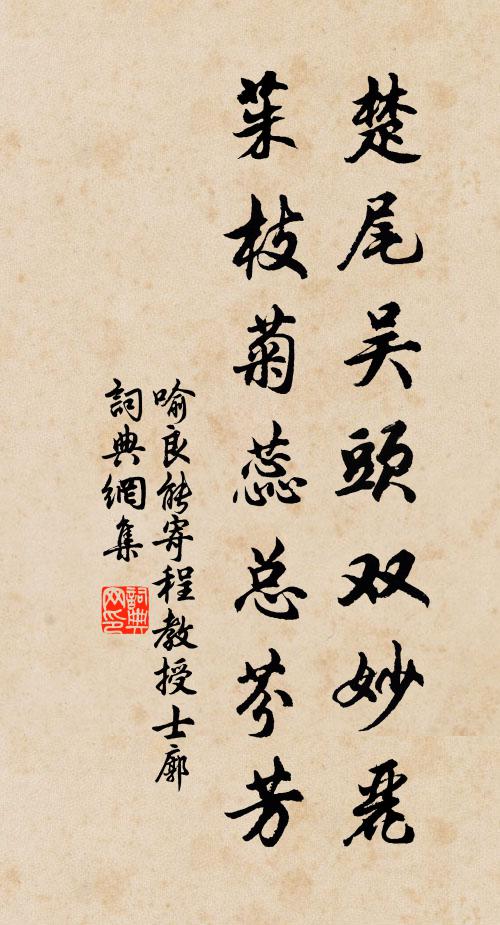 楚尾吴頭双妙麗
茱枝菊蕊总芬芳
喻良能寄程教授士廓
詞典網集
詞典网印